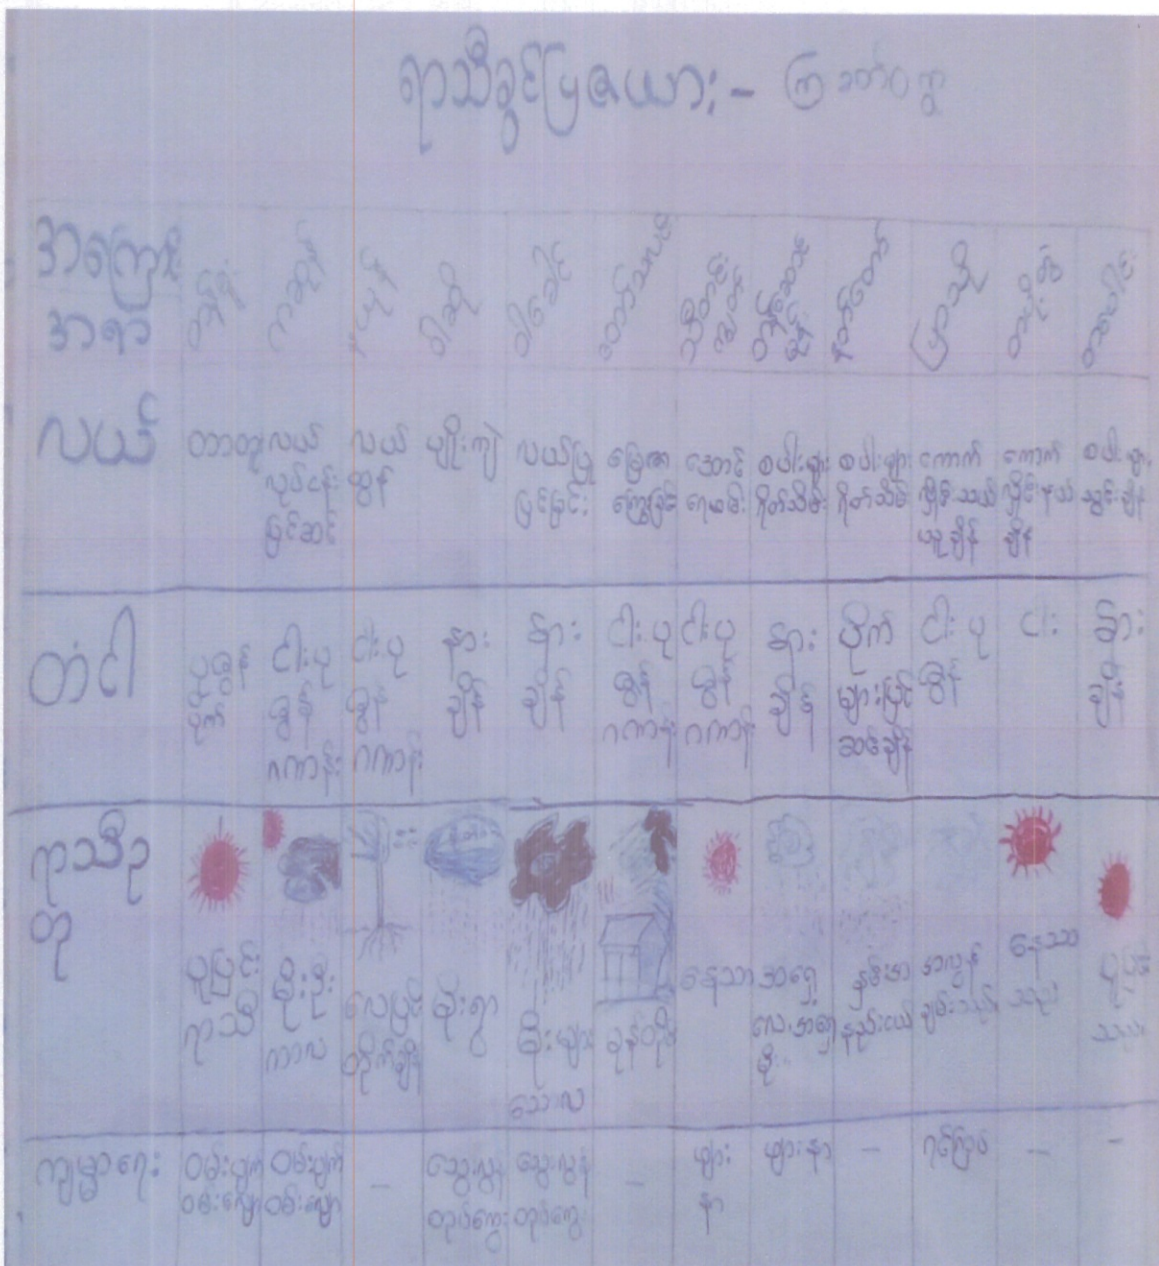 ရာသီခွင်ပြဇယား -
အကြောင်း
အရာ
တန်ခူး ကဆုန် နယုန် ဝါဆို ဝါခေါင် တော်သလင်း သီတင်းကျွတ် တန်ဆောင်မုန်း နတ်တော် ပြာသို တပို့တွဲ တပေါင်း
လယ်
တာတူး
လယ်
လုပ်ငန်း
ပြင်ဆင်
လယ်
ထွန်
ပျိုးကျဲ
လယ်ပြု
ပြင်ခြင်း
မြေဩဇာ
ကြွေးခြင်း
အောင့်
ရေထမ်း
စပါးများ
ရိတ်သိမ်း
စပါးများ
ရိတ်သိမ်း
ကောက်
လှိုင်းသယ်
ယူချိန်
ကောက်
လှိုင်းနယ်
ချိန်
စပါးများ
သွင်းချိန်
တံငါ
ပုဇွန်
ပိုက်
ငါး၊ ပု
ဇွန်
ဂဏန်း
ငါး၊ ပု
ဇွန်
ဂဏန်း
နား
ချိန်
နား
ချိန်
ငါး၊ ပု
ဇွန်
ဂဏန်း
ငါး၊ ပု
ဇွန်
ဂဏန်း
နား
ချိန်
ပိုက်
များပြင်
ဆင်ချိန်
ငါး၊ ပု
ဇွန်
ငါး
နား
ချိန်
ရာသီဥ
တု
ပူပြင်း
ရာသီ
မိုးဦး
ကာလ
လေပြင်း
တိုက်ချိန်
မိုးရွာ
မိုးများ
သောလ
နေသာ
အရှေ့
လေ၊ အရှေ့
မိုး
နှင်းအ
နည်းငယ်
အလွန်
ချမ်းသည်
နေသာ
သည်
ပူပြင်း
သည်
ကျန်းမာရေး
ဝမ်းပျက်
ဝမ်းလျှော
ဝမ်းပျက်
ဝမ်းလျှော
-
သွေးလွန်
တုပ်ကွေး
သွေးလွန်
တုပ်ကွေး
-
ဖျား
နာ
ဖျားနာ
-
ရင်ကြပ်
-
-